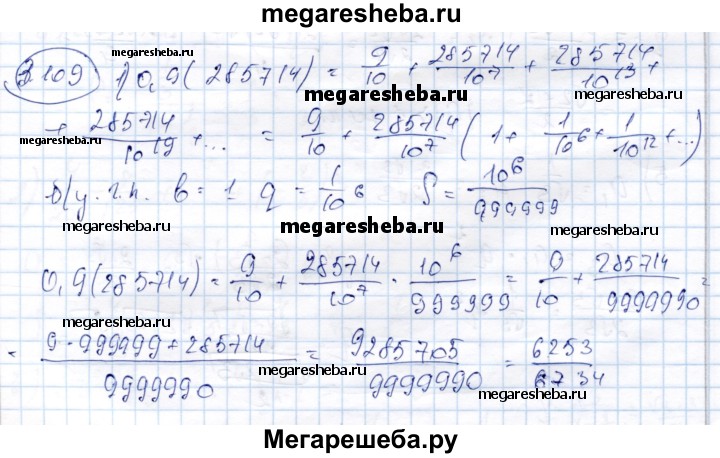 megaresheba.ru
3109 1) 0,9(285714) = 9/10 + 285714/10^7 + 285714/10^13 +
megaresheba.ru
megaresheba.ru
+ 285714/10^19 + ... = 9/10 + 285714/10^7 (1 + 1/10^6 + 1/10^12 + ...)
megaresheba.ru
б/у. г.п. b = 1 q = 1/10^6 S = 10^6/999999
megaresheba.ru
megaresheba.ru
0,9(285714) = 9/10 + 285714/10^7 · 10^6/999999 = 9/10 + 285714/9999990 =
megaresheba.ru
megaresheba.ru
= (9·999999 + 285714)/9999990 = 9285705/9999990 = 6253/6734
megaresheba.ru
megaresheba.ru
Мегарешеба.ру